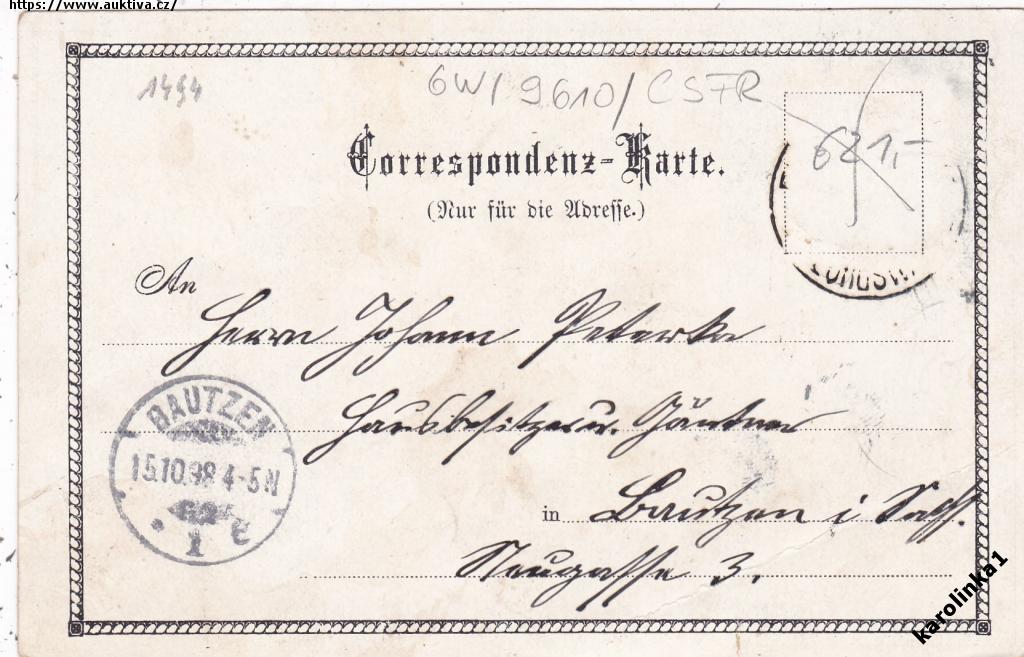 https://www.auktiva.cz/
1494
GW/9610/CSFR
621,-
Correspondenz-Karte.
(Nur für die Adresse.)
An
Herrn Johann Peterka
Hausbesitzer u. Gärtner
in Bautzen i Sachs.
Neugasse 3.
BAUTZEN
15.10.98.4-5N
1 c
karolinka1